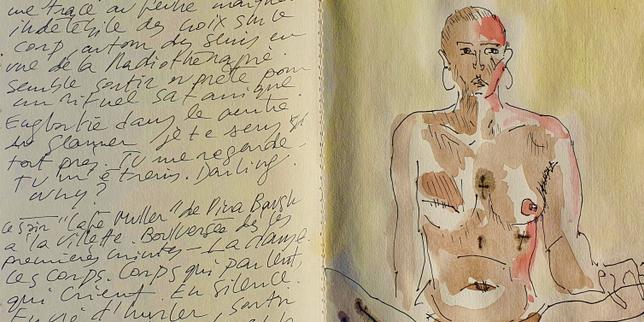 me trace au feutre marqueur
indélébile des croix sur le
corp, autour des seins en
vue de la Radiothérapie.
semble sortir prête pour
un rituel satanique.
dans le
Glamer je te sens
tout près. Tu me regarde.
Tu m'étreins. Darling.
why?
ce soir "Café Muller" de Pina Baush
a la Villette. Boulversée dès les
premières minutes - La danse.
Les corps. Corps qui parlent,
qui crient. En silence.
d'hurler, sortir